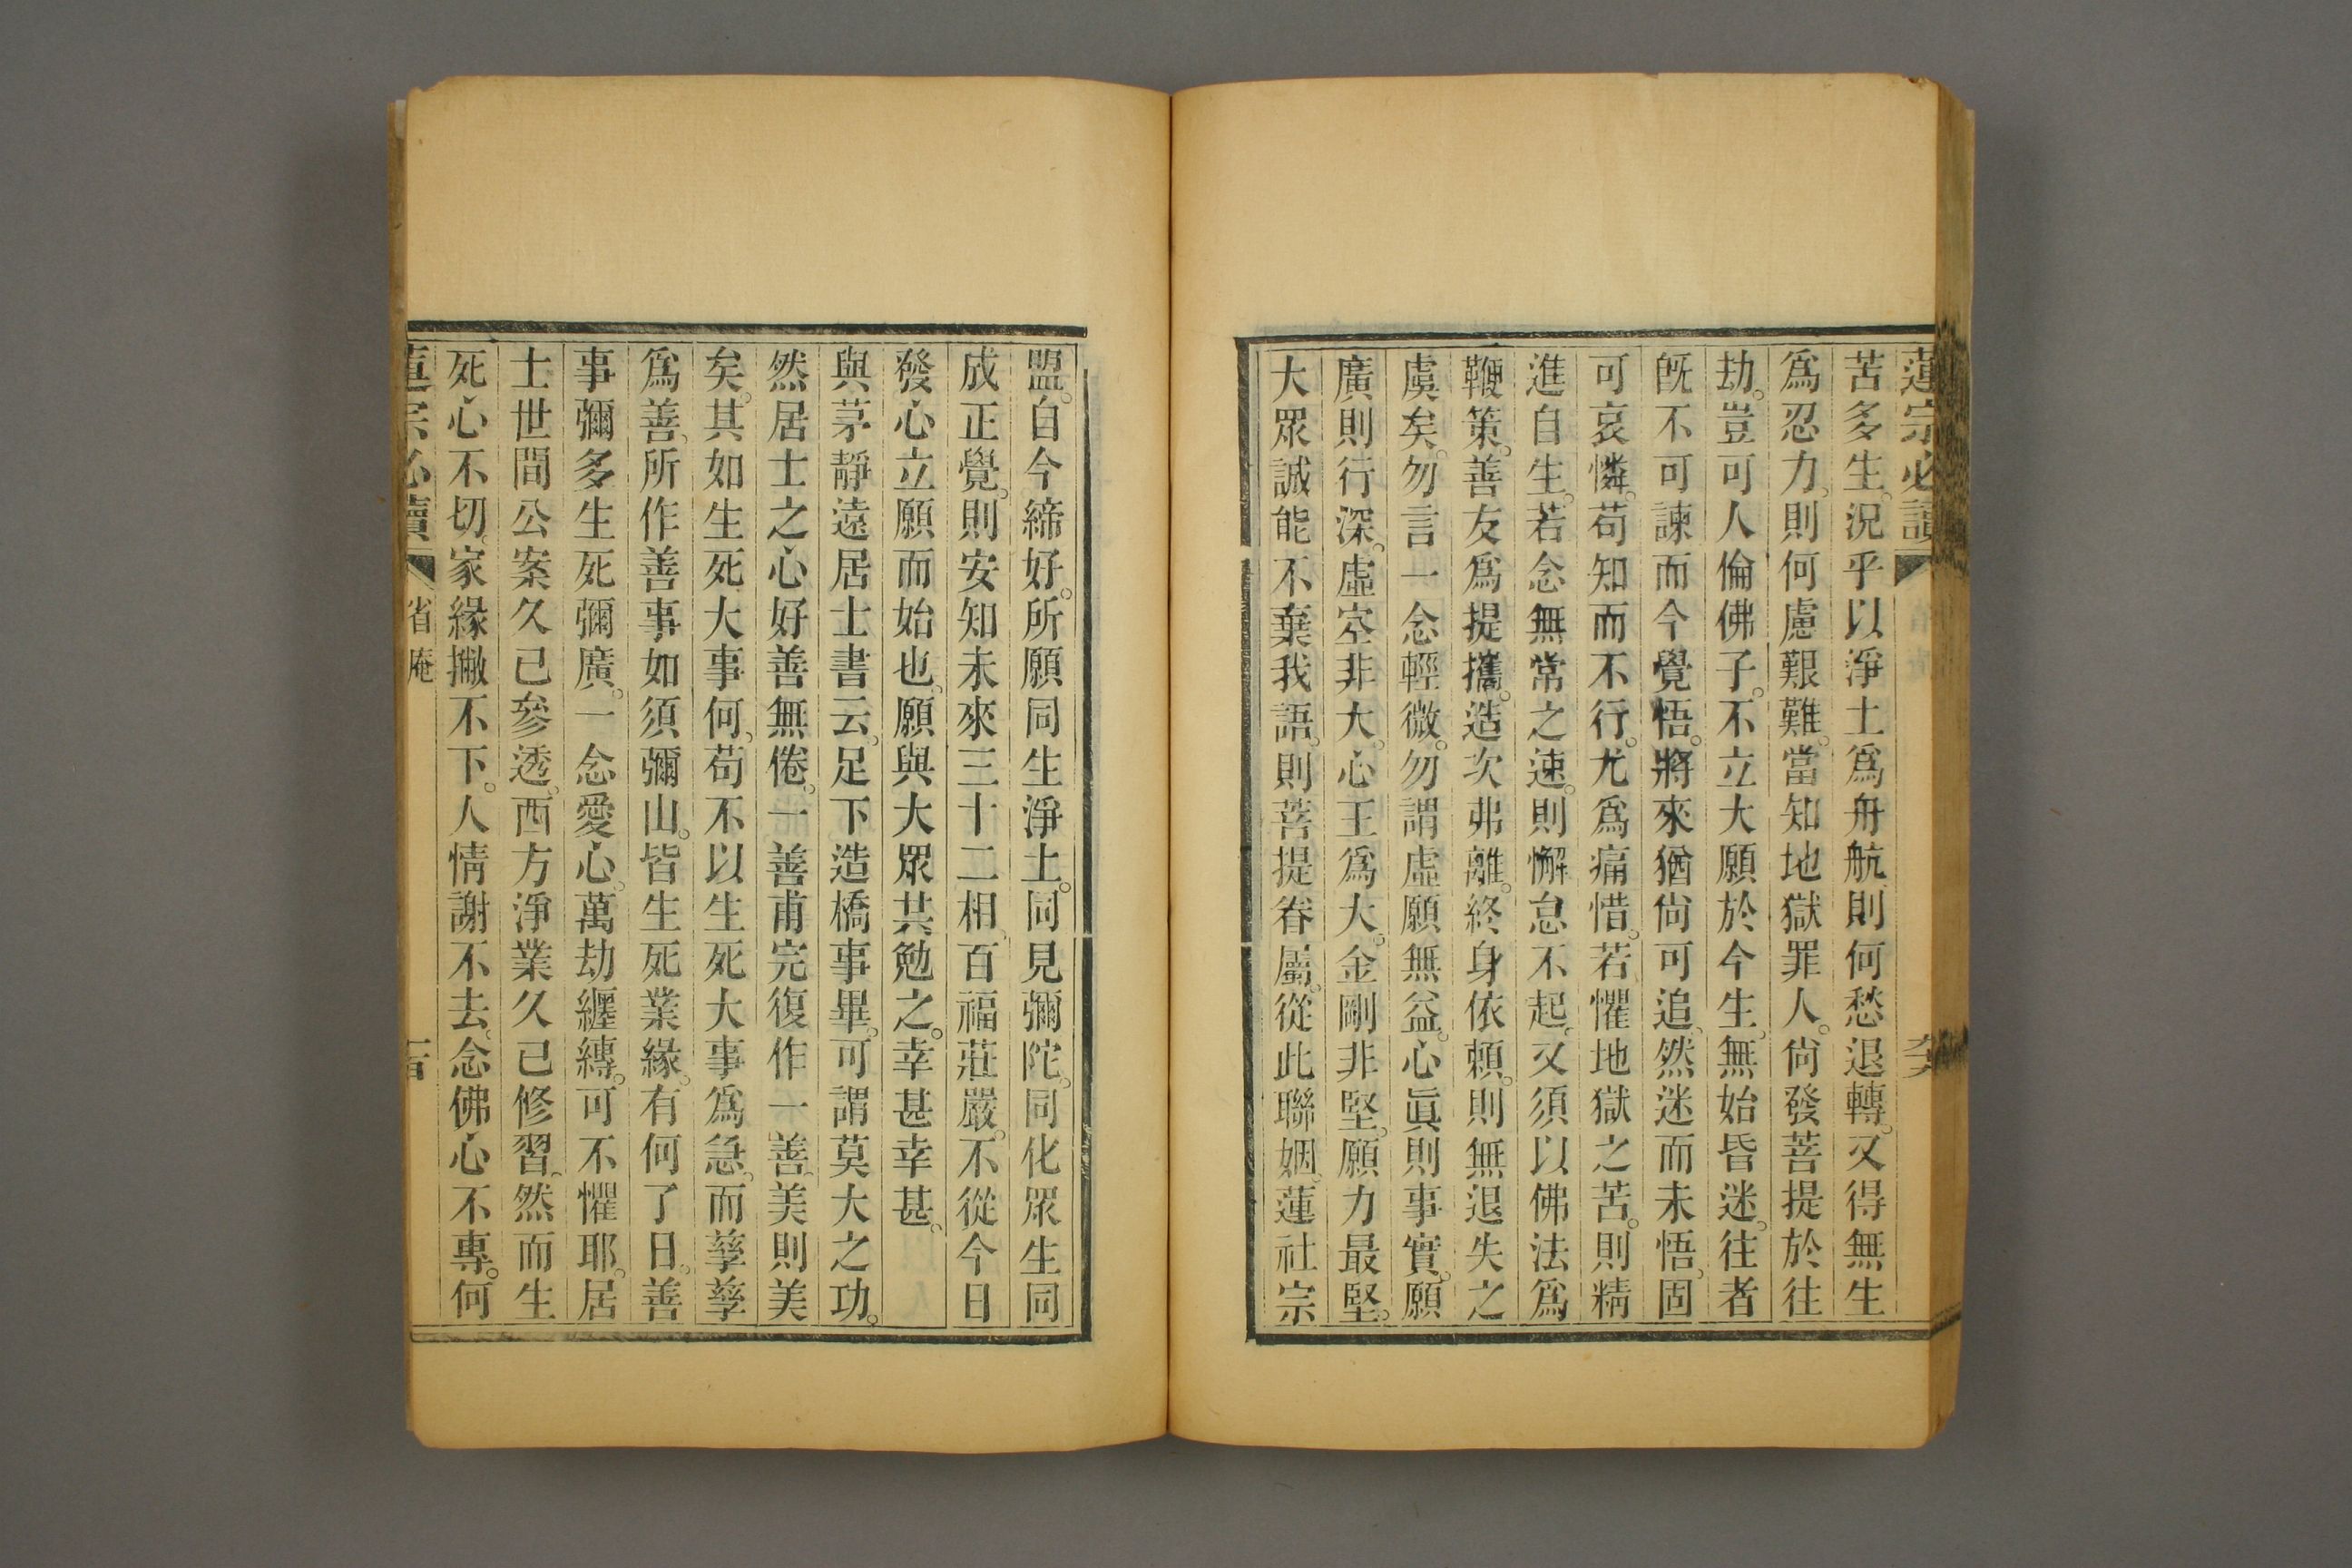 蓮宗必讀
苦多生。況乎以淨土爲舟航則何愁退轉。又得無生
爲忍力。則何慮艱難。當知地獄罪人。尙發菩提於往
劫。豈可人倫佛子。不立大願於今生。無始昏迷。往者
旣不可諫而今覺悟。將來猶尙可追。然迷而未悟。固
可哀憐。苟知而不行。尤爲痛惜。若懼地獄之苦。則精
進自生。若念無常之速。則懈怠不起。又須以佛法爲
鞭策。善友爲提攜。造次弗離。終身依賴。則無退失之
虞矣。勿言一念輕微。勿謂虛願無益。心眞則事實。願
廣則行深。虛空非大。心王爲大。金剛非堅。願力最堅。
大眾誠能不棄我語。則菩提眷屬。從此聯姻。蓮社宗
盟。自今締好。所願同生淨土。同見彌陀。同化眾生同
成正覺。則安知未來三十二相。百福莊嚴。不從今日
發心立願而始也。願與大眾共勉之。幸甚幸甚。
與茅靜遠居士書云。足下造橋事畢。可謂莫大之功。
然居士之心好善無倦。一善甫完復作一善。美則美
矣。其如生死大事何。苟不以生死大事爲急。而孳孳
爲善。所作善事如須彌山。皆生死業緣。有何了日。善
事彌多生死彌廣。一念愛心。萬劫纏縛。可不懼耶。居
士世間公案久已參透。西方淨業久已修習。然而生
死心不切。家緣撇不下。人情謝不去。念佛心不專。何
蓮宗必讀 省庵